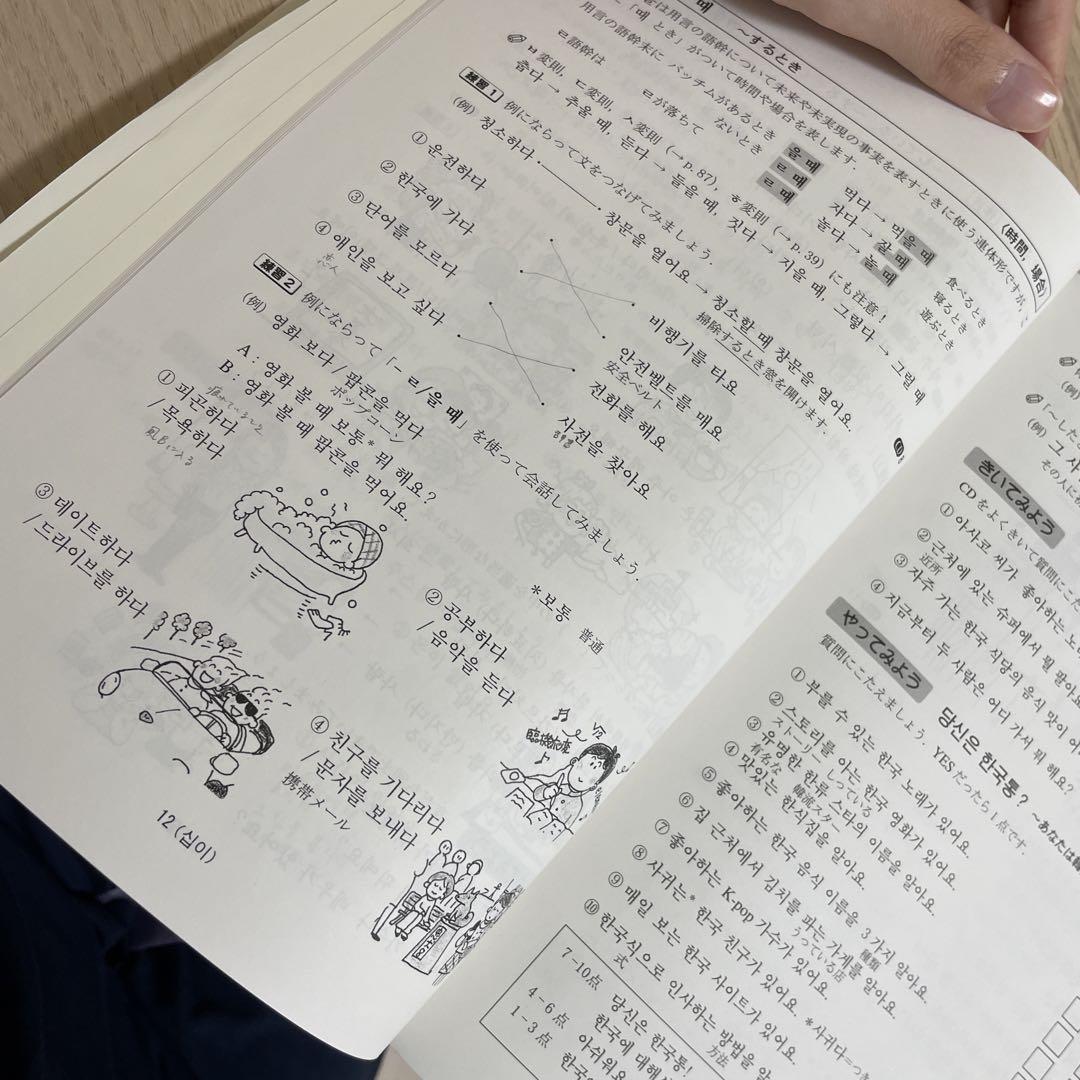 때
~するとき
は用言の語幹について未来や未実現の事実を表すときに使う連体形ですが,
「때 とき」がついて時間や場合を表します.
〈時間, 場合〉
用言の語幹末に パッチムがあるとき 을 때 먹다 → 먹을 때 食べるとき
ないとき ㄹ 때 자다 → 잘 때 寝るとき
ㄹ語幹は ㄹが落ちて ㄹ 때 놀다 → 놀 때 遊ぶとき
ㅂ変則, ㄷ変則, ㅅ変則 (→ p.87), ㅎ変則 (→ p.39) にも注意!
춥다 → 추울 때, 듣다 → 들을 때, 짓다 → 지을 때, 그렇다 → 그럴 때
練習1 例にならって文をつなげてみましょう.
(例) 청소하다. 창문을 열어요 → 청소할 때 창문을 열어요.
掃除するとき窓を開けます.
① 운전하다
② 한국에 가다
③ 단어를 모르다
④ 애인을 보고 싶다
비행기를 타요
안전벨트를 매요
安全ベルト
전화를 해요
사전을 찾아요
練習2 例にならって「-ㄹ/을 때」を使って会話してみましょう.
(例) 영화 보다 / 팝콘을 먹다
ポップコーン
A : 영화 볼 때 보통* 뭐 해요?
B : 영화 볼 때 팝콘을 먹어요.
*보통 普通
① 피곤하다
/ 목욕하다
② 공부하다
/ 음악을 듣다
③ 데이트하다
/ 드라이브를 하다
④ 친구를 기다리다
/ 문자를 보내다
携帯メール
12 (십이)
「~した
(例) 그 사
その人に
きいてみよう
CDをよくきいて質問にこた
① 아사코 씨가 좋아하는 노
② 근처에 있는 슈퍼에서 뭘 팔아요
近所
③ 자주 가는 한국 식당의 음식 맛이 어
④ 지금부터 두 사람은 어디 가서 뭐 해요?
やってみよう 당신은 한국통? ~あなたは韓
質問にこたえましょう. YESだったら1点です.
① 부를 수 있는 한국 노래가 있어요.
② 스토리를 아는 한국 영화가 있어요.
ストーリー しっている
③ 유명한 한류 스타의 이름을 알아요.
有名な 韓流スター
④ 맛있는 한식집을 알아요.
⑤ 좋아하는 한국 음식 이름을 3가지 알아요.
種類
⑥ 집 근처에서 김치를 파는 가게를 알아요.
うっている店
⑦ 좋아하는 K-pop 가수가 있어요.
⑧ 사귀는* 한국 친구가 있어요.
*사귀다=つき
⑨ 매일 보는 한국 사이트가 있어요.
⑩ 한국식으로 인사하는 방법을 알
式 方法
7-10点 당신은 한국통!
4-6点 한국에 대해서
1-3点 아쉬워요